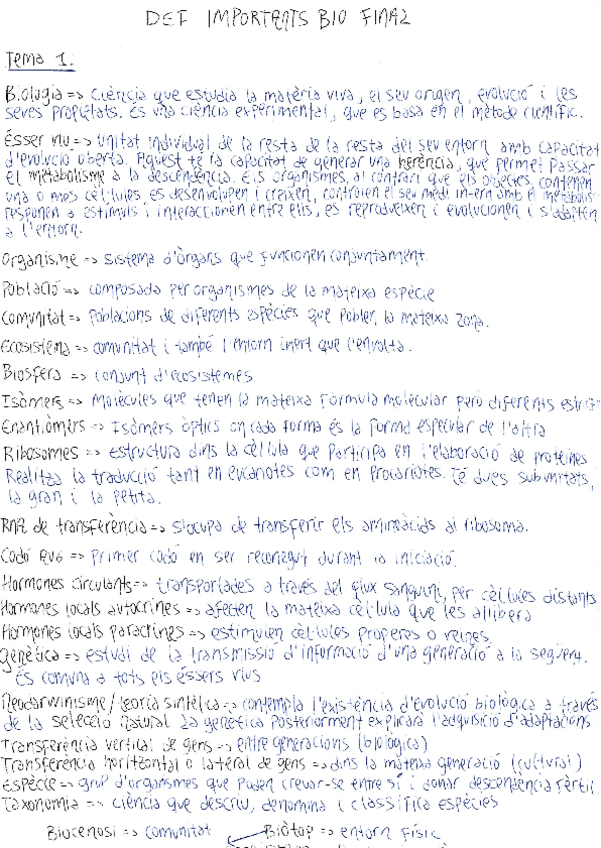 DEF IMPORTANTS BIO FINAL
Tema 1:
Biologia => Ciència que estudia la matèria viva, el seu origen, evolució i les
seves propietats. És una ciència experimental, que es basa en el mètode científic.
Ésser viu => Unitat individual de la resta de la resta del seu entorn amb capacitat
d'evolució oberta. Aquest té la capacitat de generar una herència, que permet passar
el metabolisme a la descendència. Els organismes, al contrari que els objectes, contenen
una o més cèl·lules, es desenvolupen i creixen, controlen el seu medi intern amb el metabolis
responen a estímuls i interaccionen entre ells, es reprodueixen i evolucionen i s'adapten
a l'entorn.
Organisme => Sistema d'òrgans que funcionen conjuntament.
Població => composada per organismes de la mateixa espècie
Comunitat => Poblacions de diferents espècies que poblen la mateixa zona.
Ecosistema => comunitat i també l'entorn inert que l'envolta.
Biosfera => Conjunt d'ecosistemes
Isòmers => molècules que tenen la mateixa fórmula molecular però diferents estruc
Enantiòmers => Isòmers òptics on cada forma és la forma especular de l'altra
Ribosomes => estructura dins la cèl·lula que participa en l'elaboració de proteïnes
Realitza la traducció tant en eucariotes com en procariotes. Té dues subunitats,
la gran i la petita.
RNA de transferència => s'ocupa de transferir els aminoàcids al ribosoma.
Codó AUG => primer codó en ser reconegut durant la iniciació.
Hormones circulants => transportades a través del flux sanguini, per cèl·lules distants
Hormones locals autocrines => afecten la mateixa cèl·lula que les allibera
Hormones locals paracrines => estimulen cèl·lules properes o veïnes.
Genètica => estudi de la transmissió d'informació d'una generació a la següent.
És comuna a tots els éssers vius
Neodarwinisme/teoria sintètica => contempla l'existència d'evolució biològica a través
de la selecció natural. La genètica posteriorment explicarà l'adquisició d'adaptacions
Transferència vertical de gens => entre generacions (biològica)
Transferència horitzontal o lateral de gens => dins la mateixa generació (cultural)
Espècie => grup d'organismes que poden creuar-se entre sí i donar descendència fèrtil
Taxonomia => ciència que descriu, denomina i classifica espècies
Biocenosi => comunitat Biòtop => entorn físic